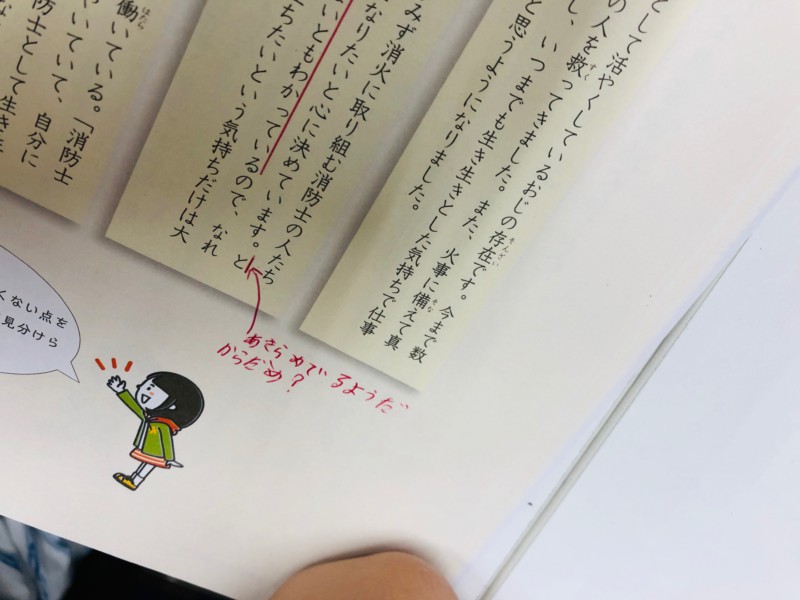 として活やくしているおじの存在です。今まで数
の人を救ってきました。また、火事に備えて真
し、いつまでも生き生きとした気持ちで仕事
と思うようになりました。
みず消火に取り組む消防士の人たち
なりたいと心に決めています。と
いともわかっているので、なれ
ちたいという気持ちだけは大
働いている。「消防士
いていて、自分に
防士として生き
くない点を
見分けら
あきらめているようだ
からだめ?